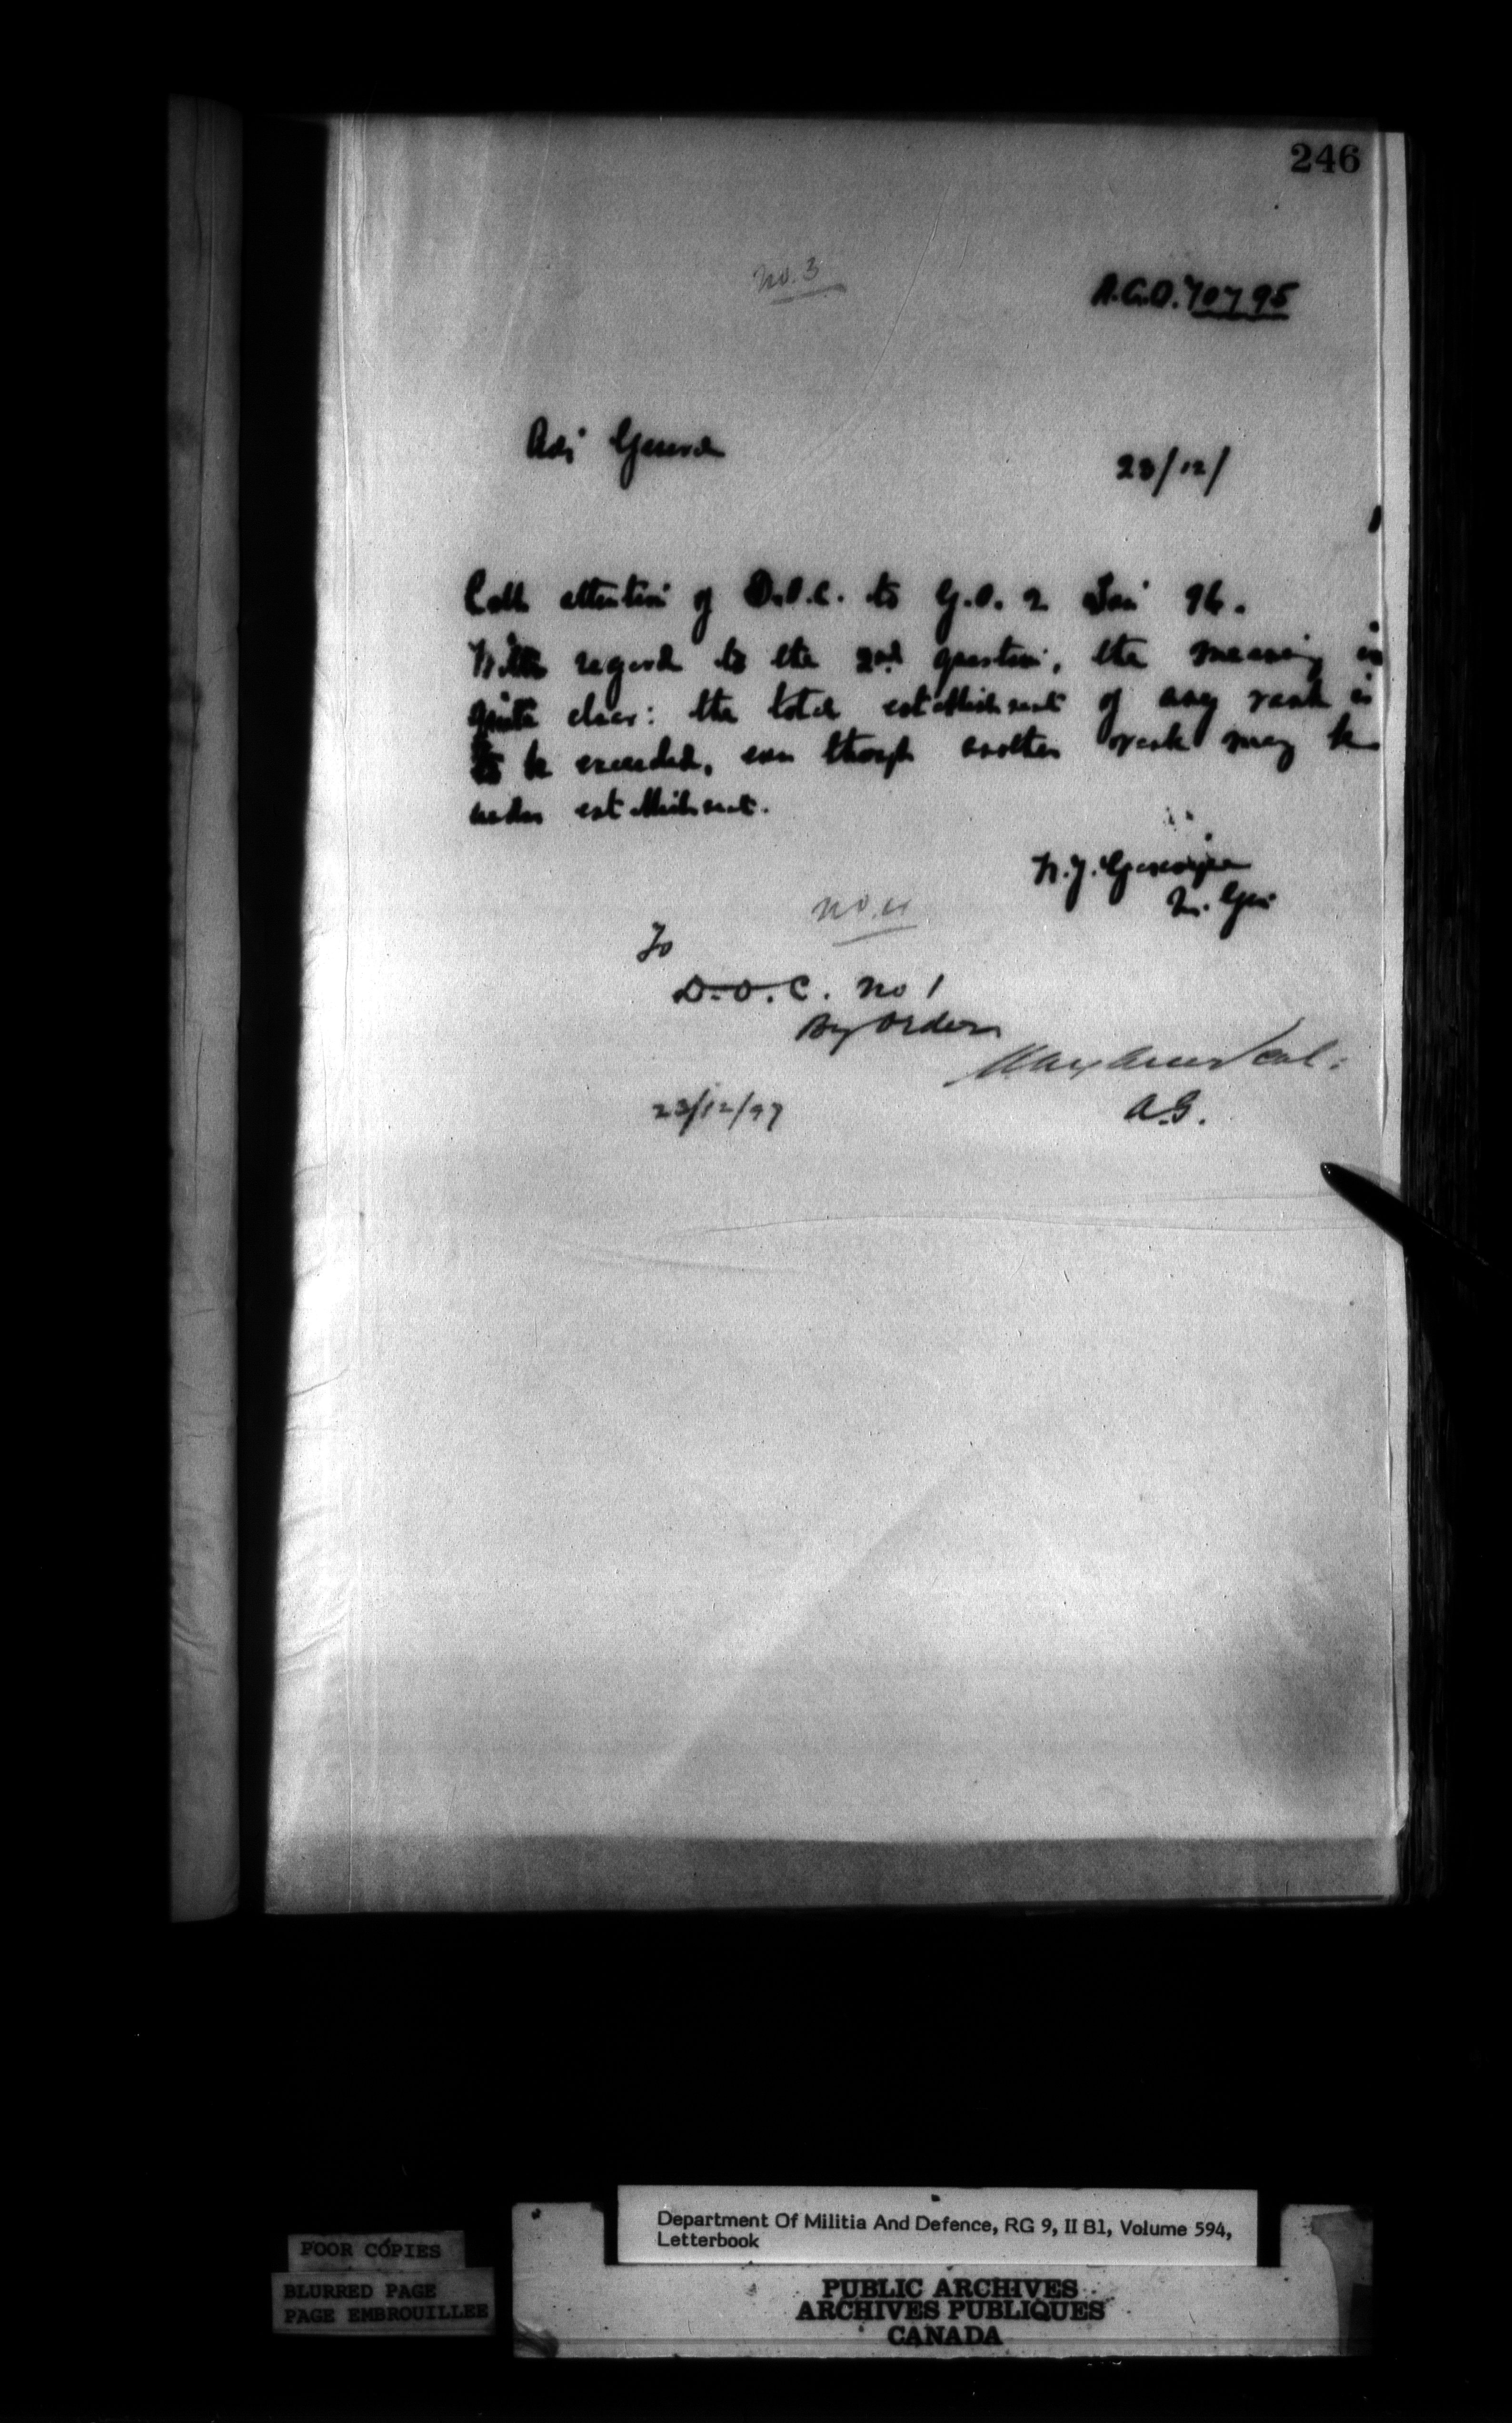 246
No. 3
A.G.O. 70795
Adj General
23/12/
Call attention of D.O.C. to G.O. 2 Jan 96.
With regard to the 2nd question, the meaning is
quite clear: the total establishment of any rank is
to be exceeded, even though another rank may be
under establishment.
W.J. Gascoigne
M. Gen
No. 4
To
D.O.C. No 1
By Order
Aylmer Col:
23/12/97
A.G.
Department Of Militia And Defence, RG 9, II B1, Volume 594,
Letterbook
POOR COPIES
BLURRED PAGE
PAGE EMBROUILLEE
PUBLIC ARCHIVES
ARCHIVES PUBLIQUES
CANADA